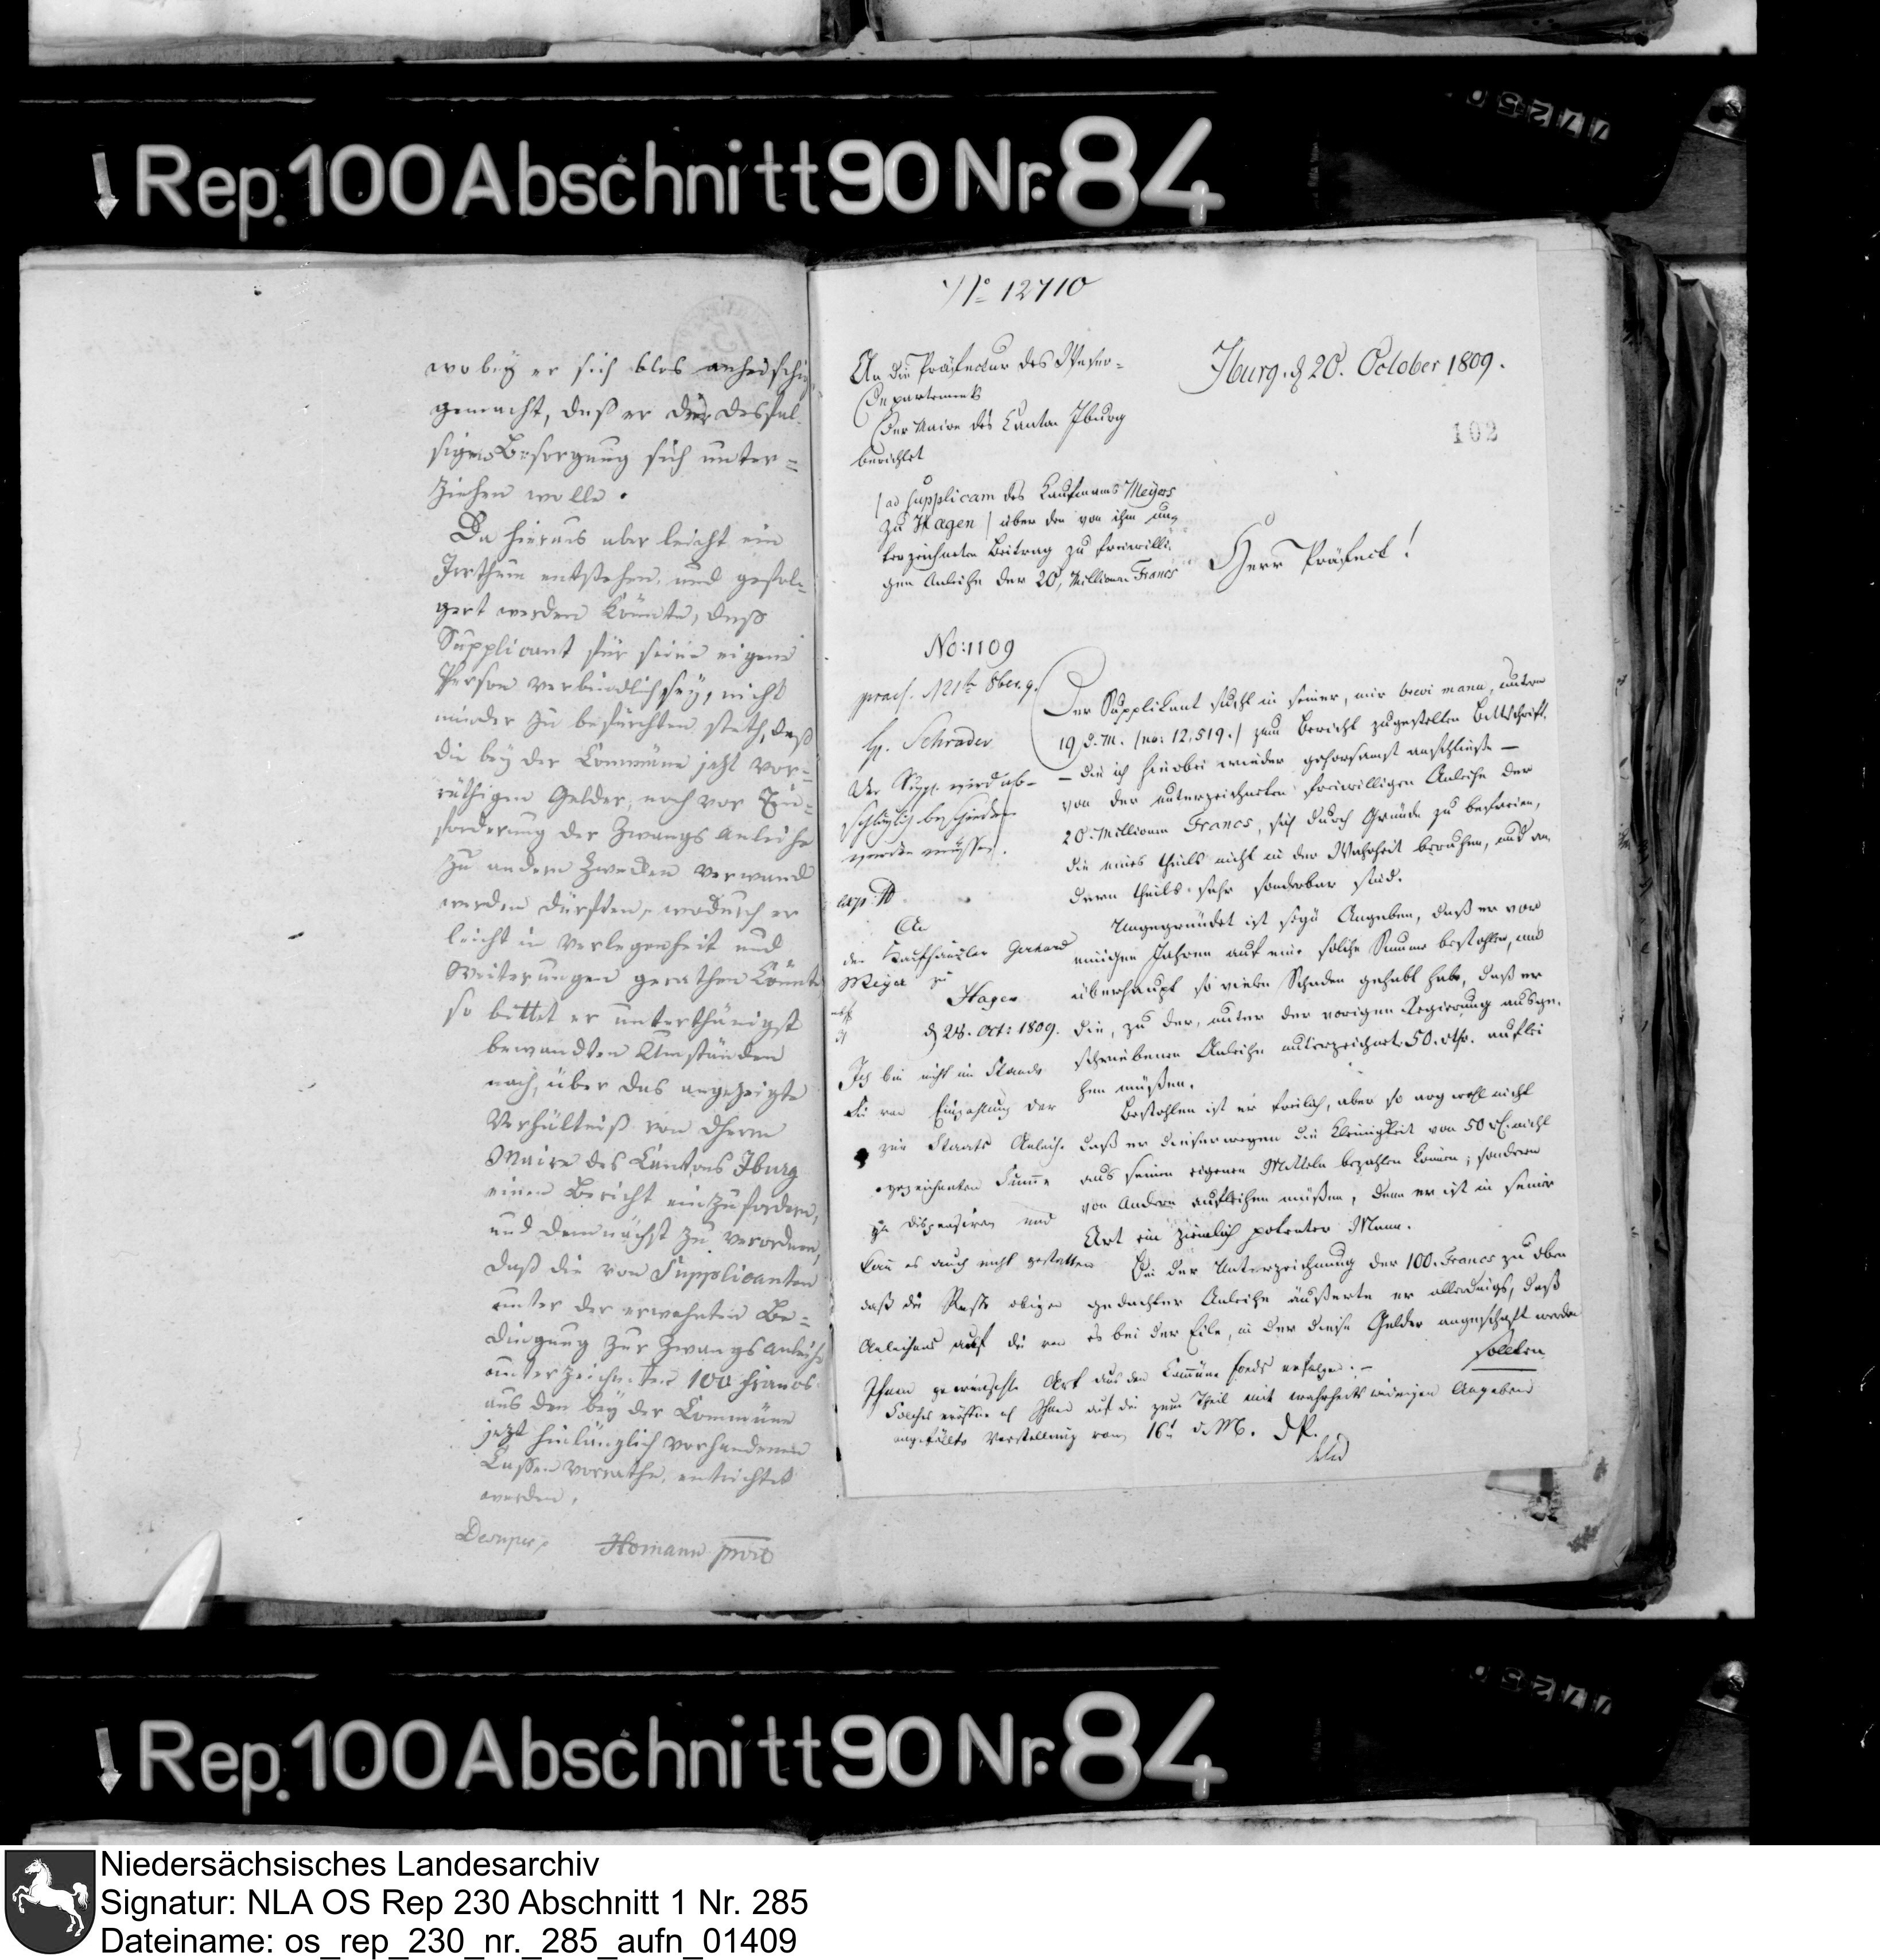 Rep. 100 Abschnitt 90 Nr. 84
wobey er sich blos anheischig
gemacht, daß er der desfal-
sigen Besorgung sich unter=
ziehen wolle.
Da hieraus aber leicht ein
Irrthum entstehen und gefol-
gert werden könnte, daß
Supplicant für seine eigene
Person verbindlich sey, nicht
minder zu befürchten steth, daß
die bey der Commüne jetzt vor=
räthigen Gelder, noch vor Ein=
forderung der Zwangs Anleihe
zu andern Zwecken verwand
werden dürften, wodurch er
leicht in Verlegenheit und
Weiterungen gerathen könnte
so bittet er unterthänigst
bewandten Umständen
nach, über das angezeigte
Verhältniß von dem
Maire des Cantons Iburg
einen Bericht einzufordern,
und demnächst zu verordnen,
daß die von Supplicanten
unter der erwehnten Be=
dingung zur Zwangs Anleihe
unterzeichneten 100 francs
aus den bey der Commüne
jetzt hinlänglich vorhandenen
Cassen vorrathe entrichtet
werden.
Homann
No 12710
An die Präfectur des Weser-
Departements
Der Maire des Canton Iburg
berichtet
Iburg, d 20. October 1809.
102
/ad supplicam des Kaufmanns Meyers
zu Hagen / über den von ihm un-
terzeichneten Beitrag zu freiwilli-
gen Anleihe der 20, Millionen Francs
Herr Präfect!
No: 1109
praes. d 21t 8ber. 9.
H. Schrader
Der Suppl. wird ab-
schläglich beschieden
werden müssen.
An
den Kaufhändler Gerhard
Meyer zu
Hagen
d 28. Oct: 1809.
Ich bin nicht im Stande
Sie von Einzahlung der
zur Staats Anleihe
gezeichneten Summe
zu dispensiren und
kan es auch nicht gestatten
daß die Reste obiger
Anleihens auf die von
Ihnen gewünschte Art aus den Commüne fonds erfolge. -
Solches eröffne ich Ihnen auf die zum Theil mit wahrheitswidrigen Angaben
angefüllte Vorstellung vom 16t d. M. D P.
Der Supplikant sucht in seiner, mir brevi manu, unterm
19 d. M. (no: 12,519.) zum Bericht zugestellten Bittschrift,
— die ich hierbei wieder gehorsamst anschließe —
von der unterzeichneten freiwilligen Anleihe der
20. Millionen Francs, sich durch Gründe zu befreien,
die eines theils nicht in der Wahrheit beruhen, und an-
dern theils sehr sonderbar sind.
Ungegründet ist sein Angeben, daß er vor
einigen Jahren auf eine solche Summe bestohlen, und
überhaupt so vielen Schaden gehabt habe, daß er
die, zu der, unter der vorigen Regierung ausge-
schriebenen Anleihe unterzeichnete 50. rthr. auflei
hen müßen.
Bestohlen ist er freilich, aber so arg wohl nicht
daß er dieserwegen die Kleinigkeit von 50 rt. nicht
aus seinen eigenen Mitteln bezahlen können; sondern
von Andern aufleihen müßen, denn er ist in seiner
Art ein ziemlich potenter Mann.
Bei der Unterzeichnung der 100. Francs zu oben
gedachter Anleihe äußerte er allerdings, daß
es bei der Eile, in der diese Gelder angeschaft werden
sollten
Rep. 100 Abschnitt 90 Nr. 84
Niedersächsisches Landesarchiv
Signatur: NLA OS Rep 230 Abschnitt 1 Nr. 285
Dateiname: os_rep_230_nr._285_aufn_01409